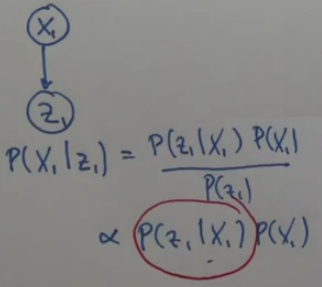 X₁
Z₁
P(X₁|z₁) = P(z₁|X₁) P(X₁)
P(z₁)
∝ P(z₁|X₁) P(X₁)